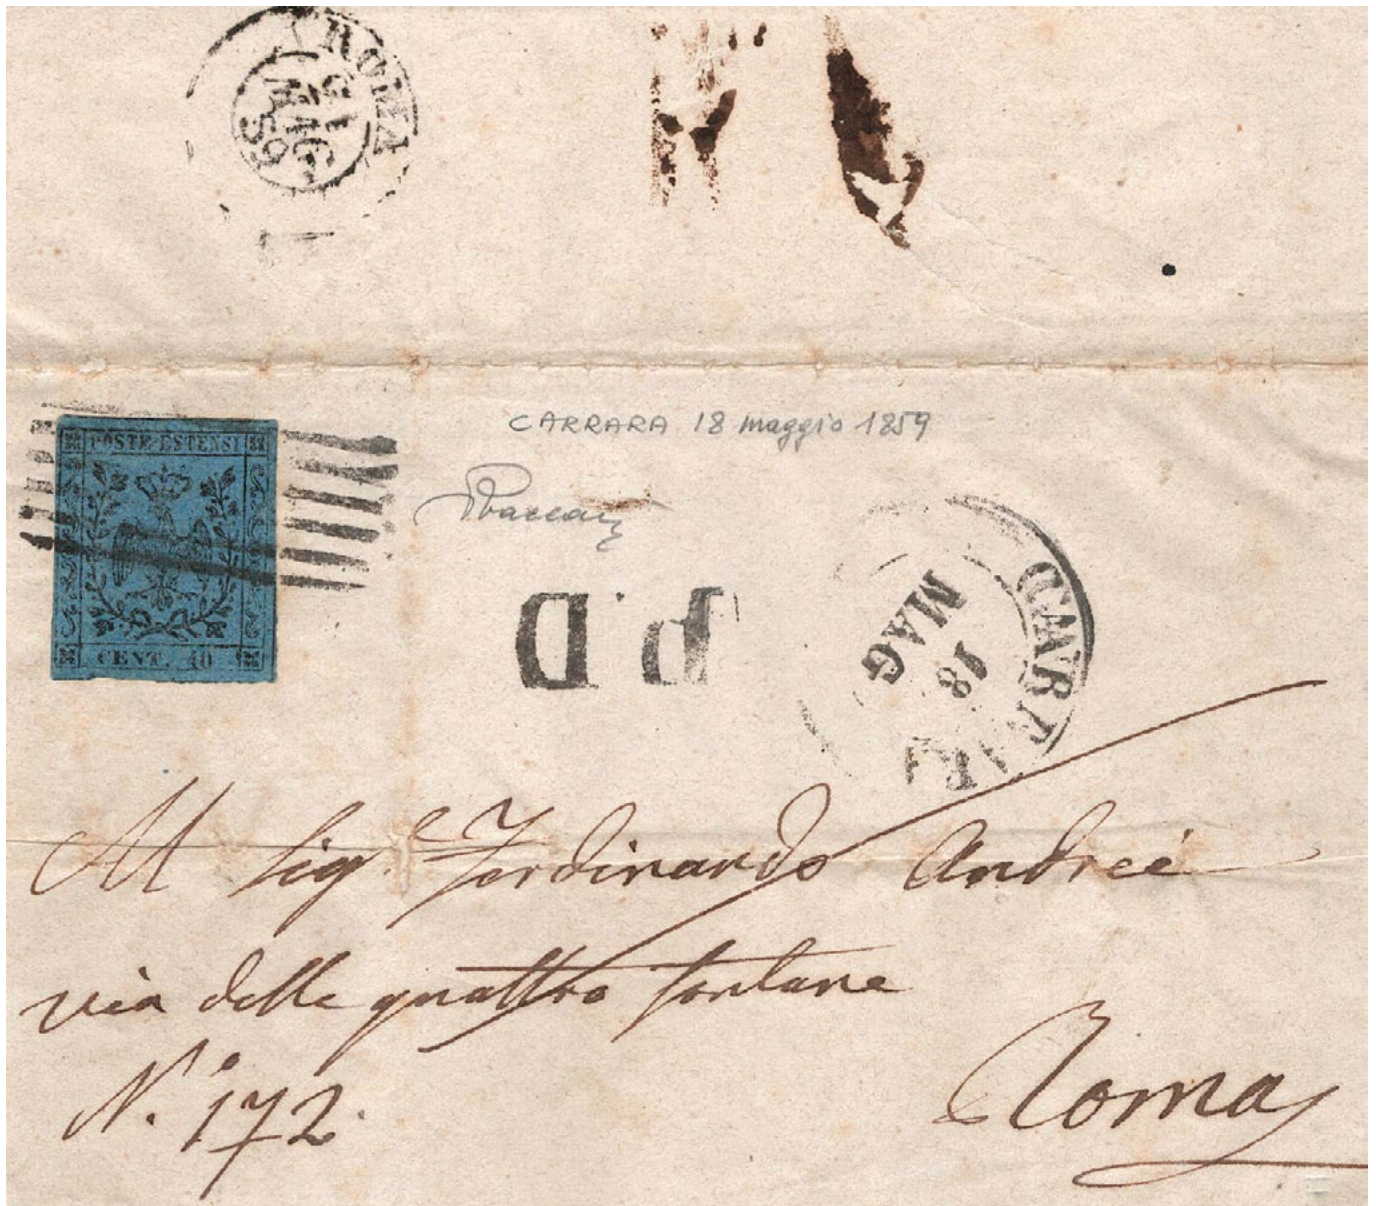 ROMA
MAG
59
CARRARA 18 maggio 1859
POSTE ESTENSI
CENT. 40
P.D
CARRARA
18
MAG
Al Sig.e Ferdinando Andreé
via delle quattro fontane
N.° 172.
Roma